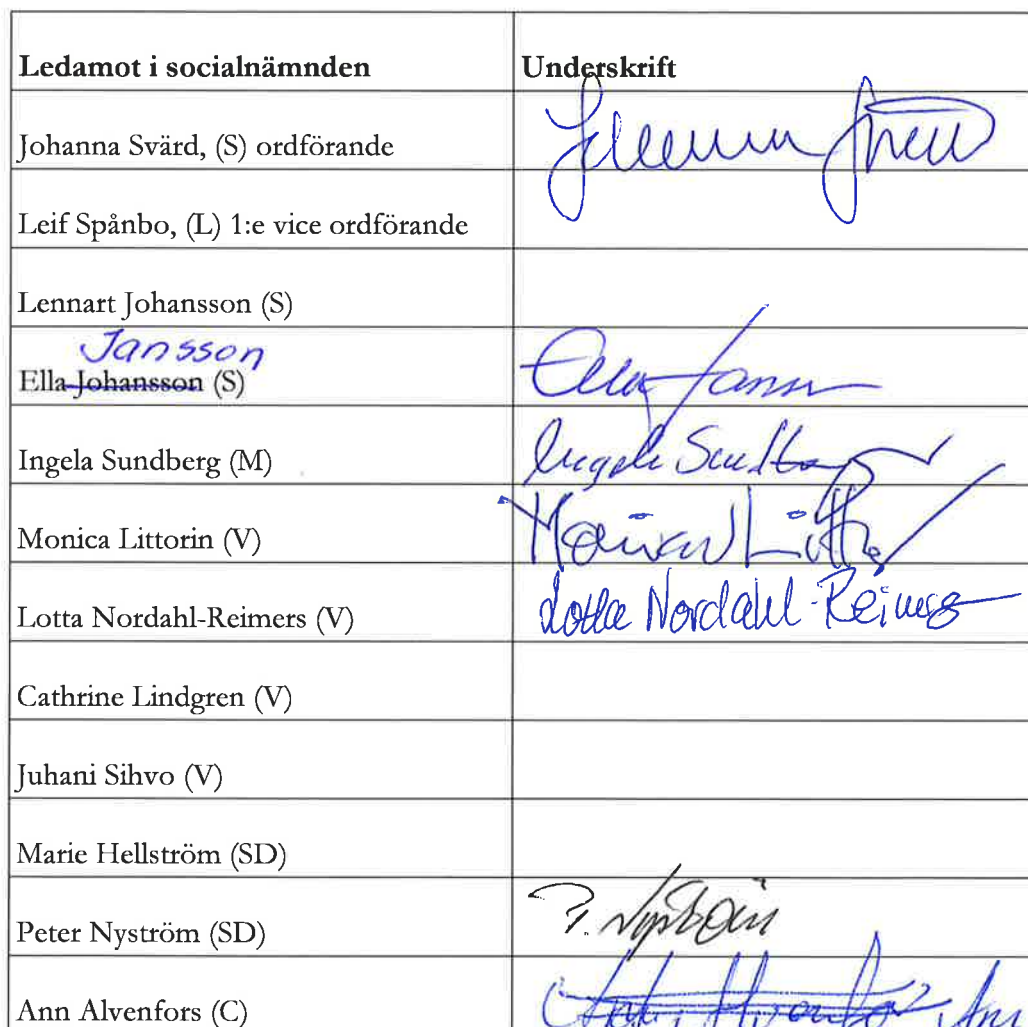 Ledamot i socialnämnden Underskrift
Johanna Svärd, (S) ordförande
Leif Spånbo, (L) 1:e vice ordförande
Lennart Johansson (S)
Jansson
Ella Johansson (S) Ella
Ingela Sundberg (M) Ingela
Monica Littorin (V)
Lotta Nordahl-Reimers (V) Lotta Nordahl-Reimers
Cathrine Lindgren (V)
Juhani Sihvo (V)
Marie Hellström (SD)
Peter Nyström (SD) P. Nyström
Ann Alvenfors (C)